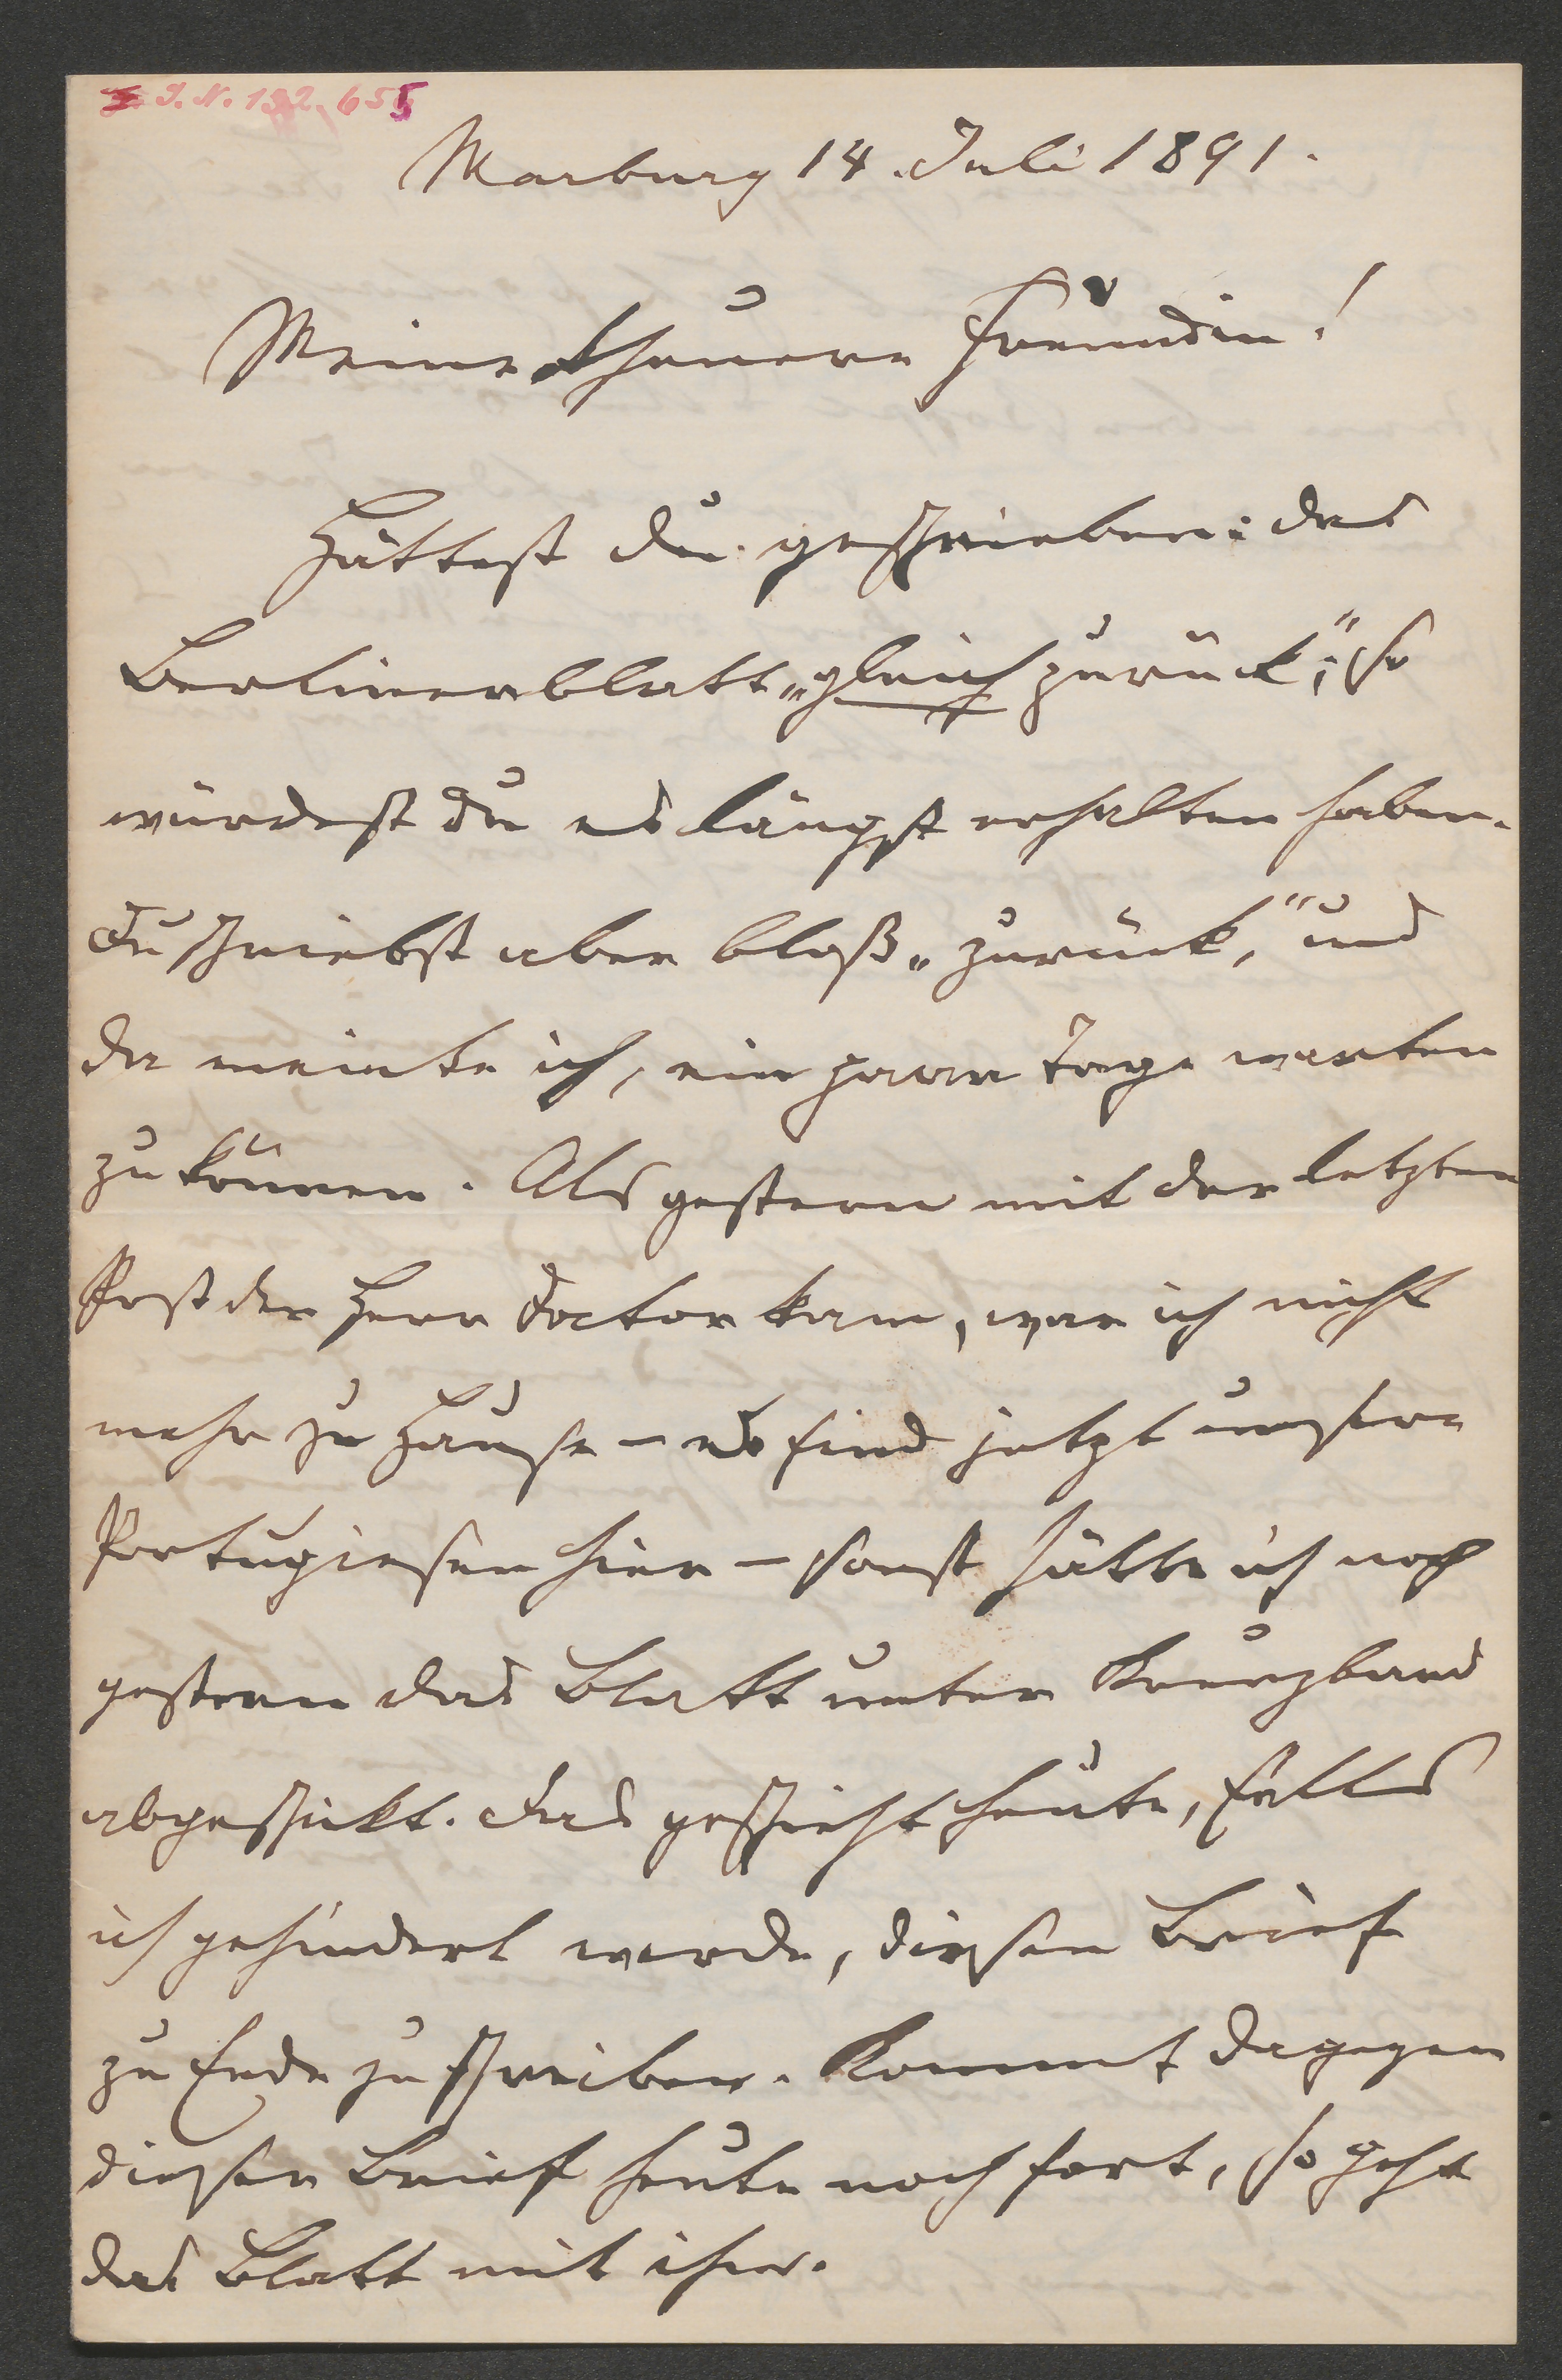 I. N. 132.655
Marburg 14. Juli 1891.
Meine theuere Freundin!
Hättest du geschrieben: das
Berlinerblatt „gleich zurück“, so
würdest du es längst erhalten haben.
Du schriebst aber bloß „zurück,“ und
da meinte ich, ein paar Tage warten
zu können. Als gestern mit der letzten
Post der Herr Doctor kam, war ich nicht
mehr zu Hause – es sind jetzt unsere
Portugiesen hier – sonst hätte ich noch
gestern das Blatt unter Kreuzband
abgeschickt. Das geschieht heute, falls
ich gehindert werde, diesen Brief
zu Ende zu schreiben. Kommt dagegen
dieser Brief heute noch fort, so geht
das Blatt mit ihm.